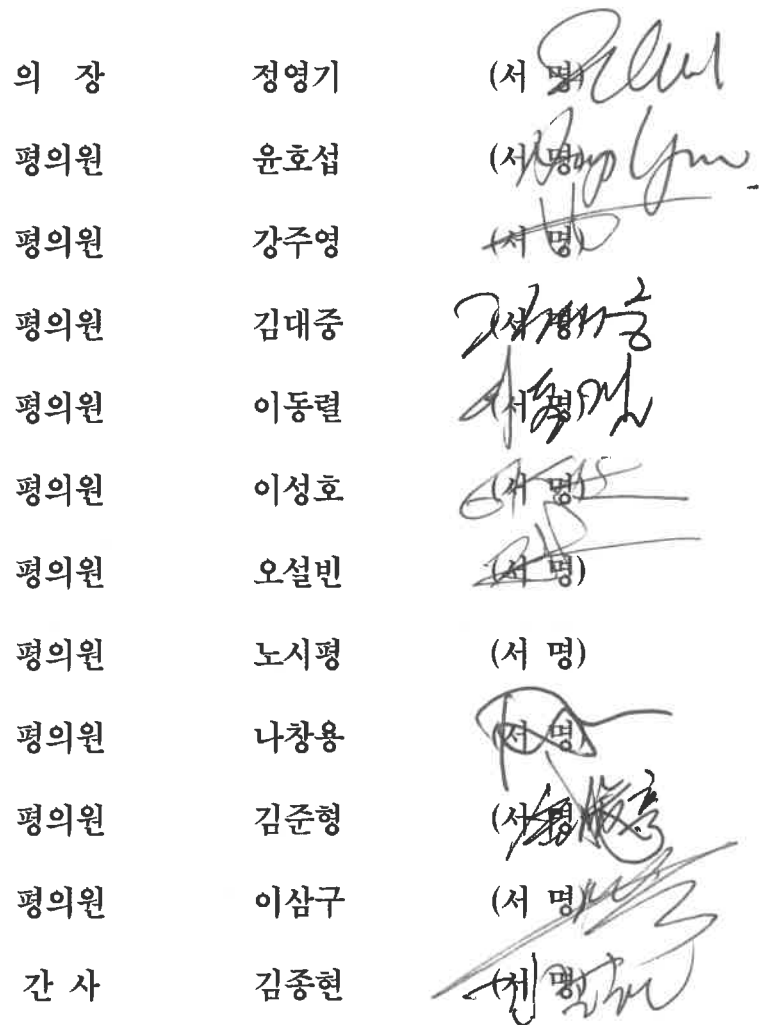 의 장 정영기 (서 명)
평의원 윤호섭 (서 명)
평의원 강주영 (서 명)
평의원 김대중 (서 명)
평의원 이동렬 (서 명)
평의원 이성호 (서 명)
평의원 오설빈 (서 명)
평의원 노시평 (서 명)
평의원 나창용 (서 명)
평의원 김준형 (서 명)
평의원 이삼구 (서 명)
간 사 김종현 (서 명)